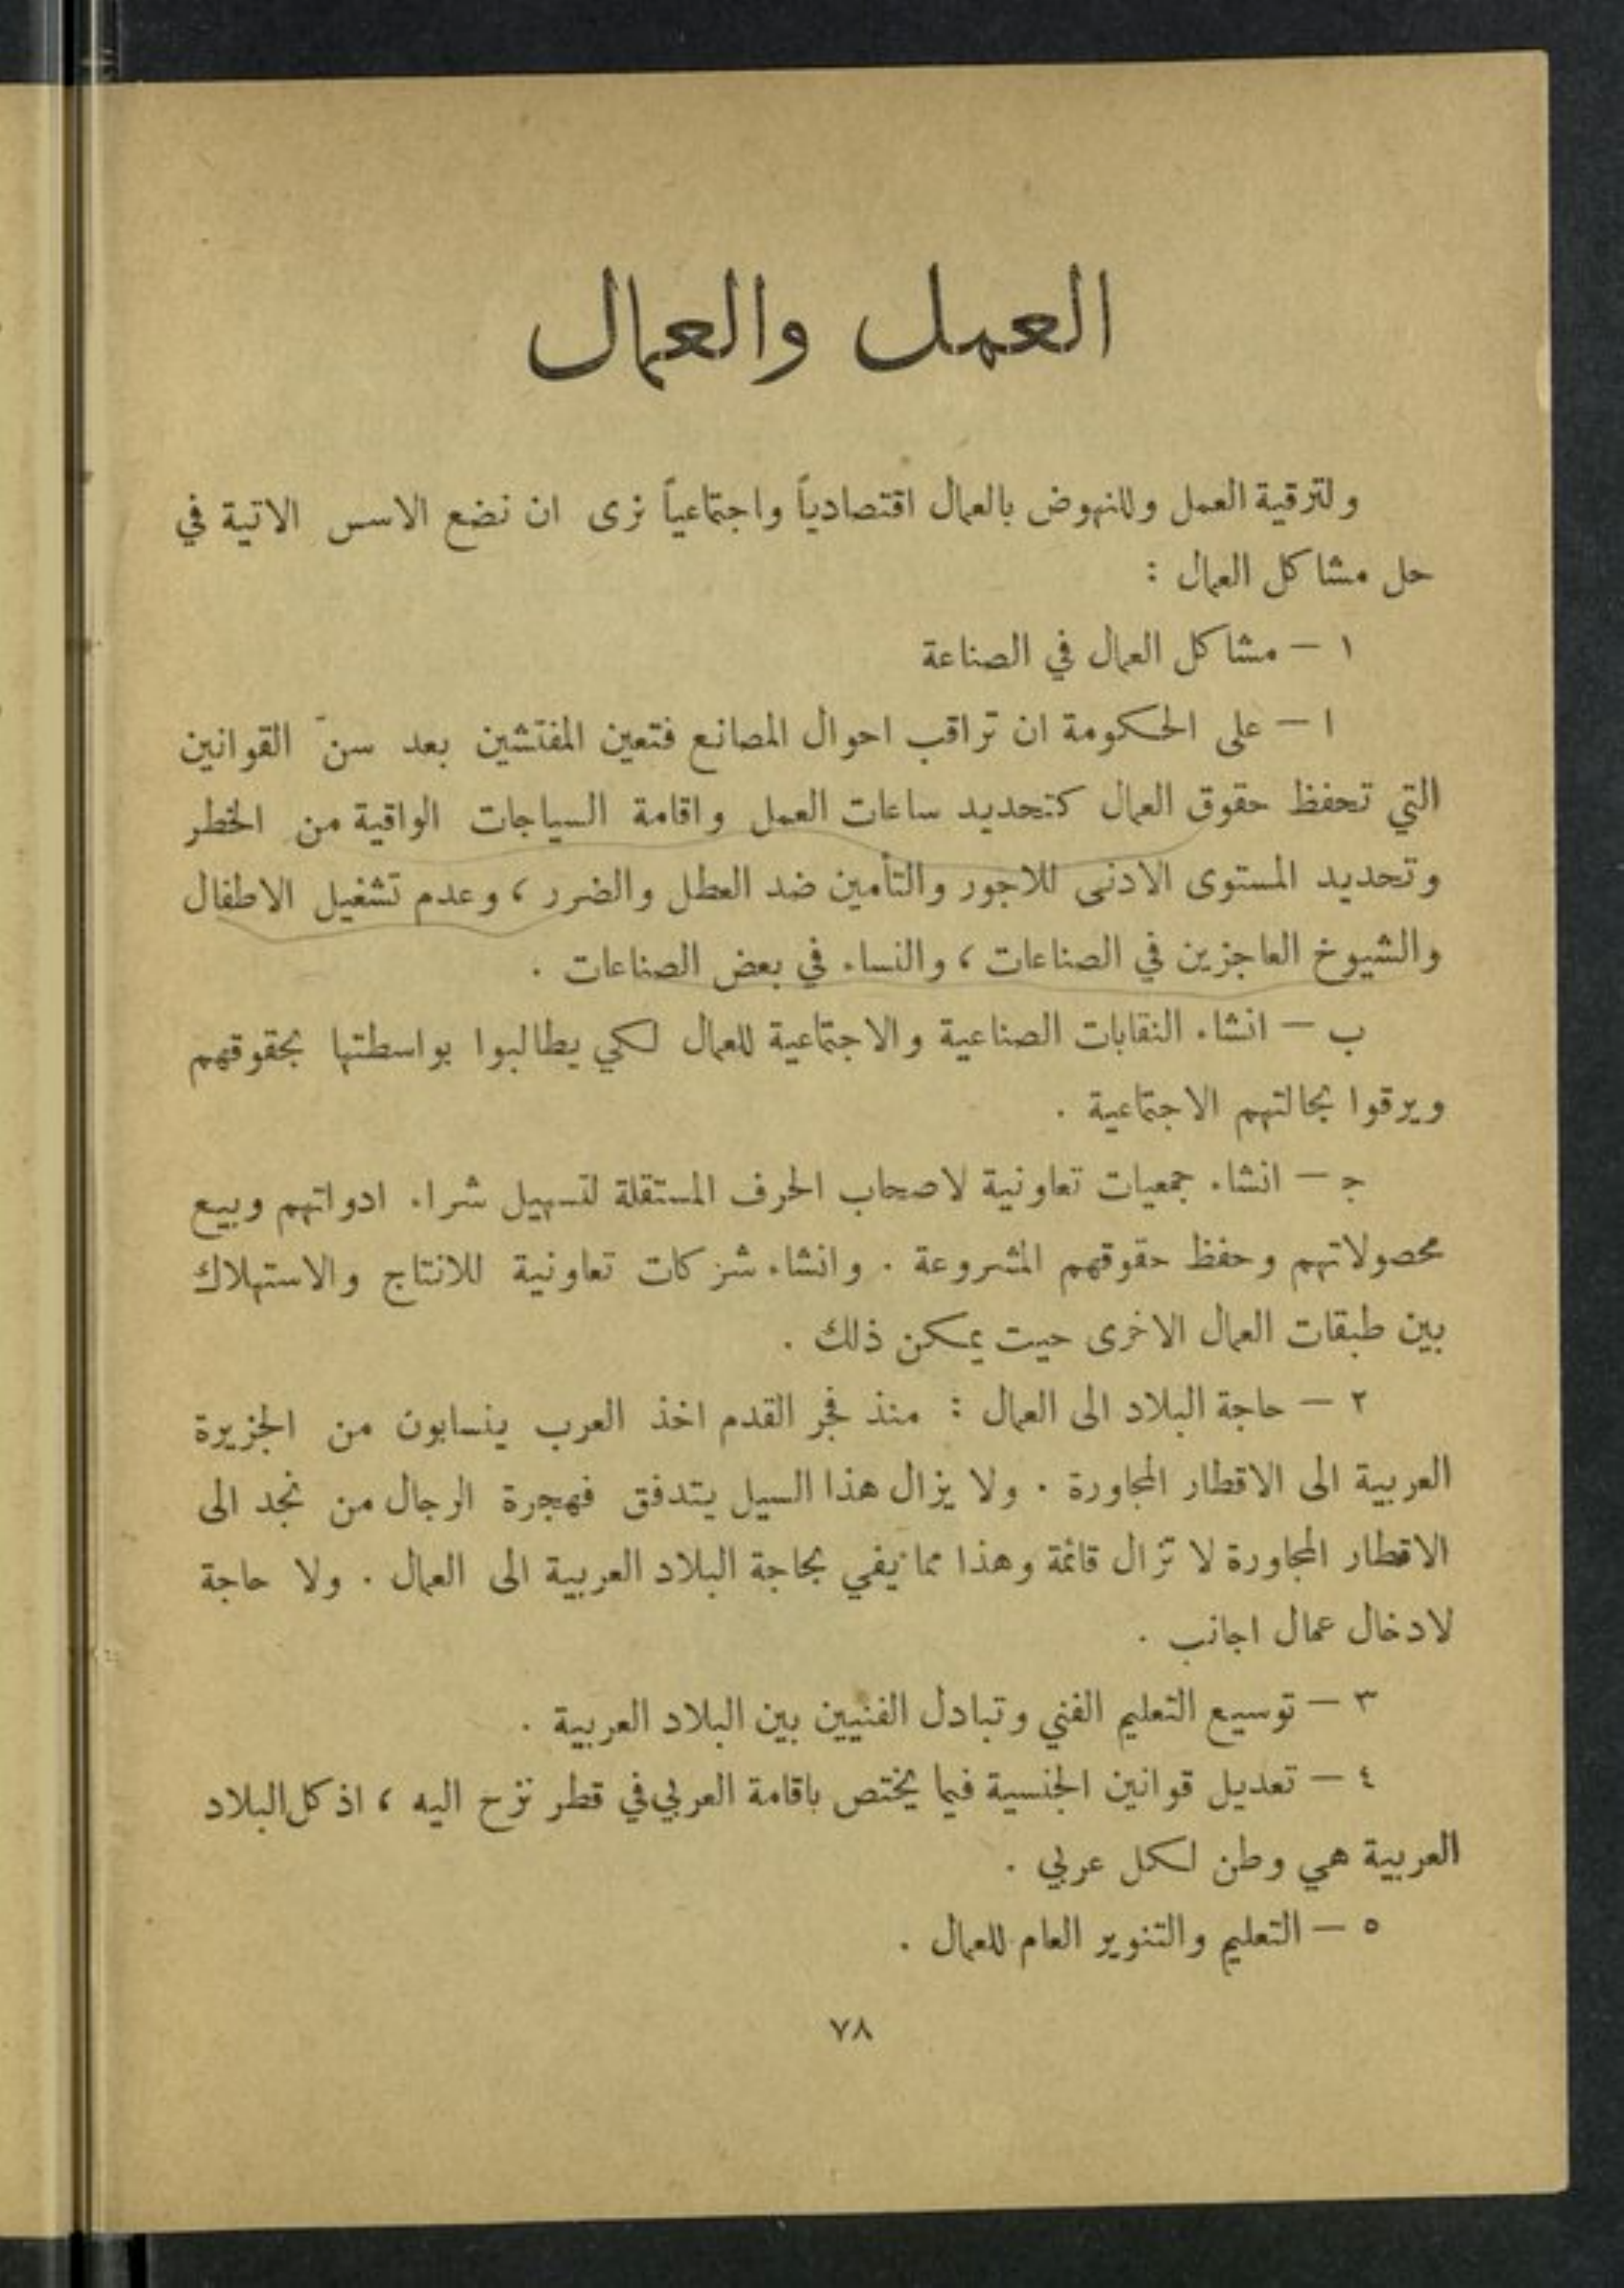 العمل والعمال
ولترقية العمل وللنهوض بالعمال اقتصادياً واجتماعياً نرى ان نضع الاسس الاتية في
حل مشاكل العمال :
١ – مشاكل العمال في الصناعة
ا – على الحكومة ان تراقب احوال المصانع فتعين المفتشين بعد سنّ القوانين
التي تحفظ حقوق العمال كتحديد ساعات العمل واقامة السياجات الواقية من الخطر
وتحديد المستوى الادنى للاجور والتأمين ضد العطل والضرر ، وعدم تشغيل الاطفال
والشيوخ العاجزين في الصناعات ، والنساء في بعض الصناعات .
ب – انشاء النقابات الصناعية والاجتماعية للعمال لكي يطالبوا بواسطتها بحقوقهم
ويرقوا بحالتهم الاجتماعية .
ج – انشاء جمعيات تعاونية لاصحاب الحرف المستقلة لتسهيل شراء ادواتهم وبيع
محصولاتهم وحفظ حقوقهم المشروعة . وانشاء شركات تعاونية للانتاج والاستهلاك
بين طبقات العمال الاخرى حيت يمكن ذلك .
٢ – حاجة البلاد الى العمال : منذ فجر القدم اخذ العرب ينسابون من الجزيرة
العربية الى الاقطار المجاورة . ولا يزال هذا السيل يتدفق فهجرة الرجال من نجد الى
الاقطار المجاورة لا تزال قائمة وهذا مما يفي بحاجة البلاد العربية الى العمال . ولا حاجة
لادخال عمال اجانب .
٣ – توسيع التعليم الفني وتبادل الفنيين بين البلاد العربية .
٤ – تعديل قوانين الجنسية فيما يختص باقامة العربي في قطر نزح اليه ، اذ كل البلاد
العربية هي وطن لكل عربي .
٥ – التعليم والتنوير العام للعمال .
٧٨